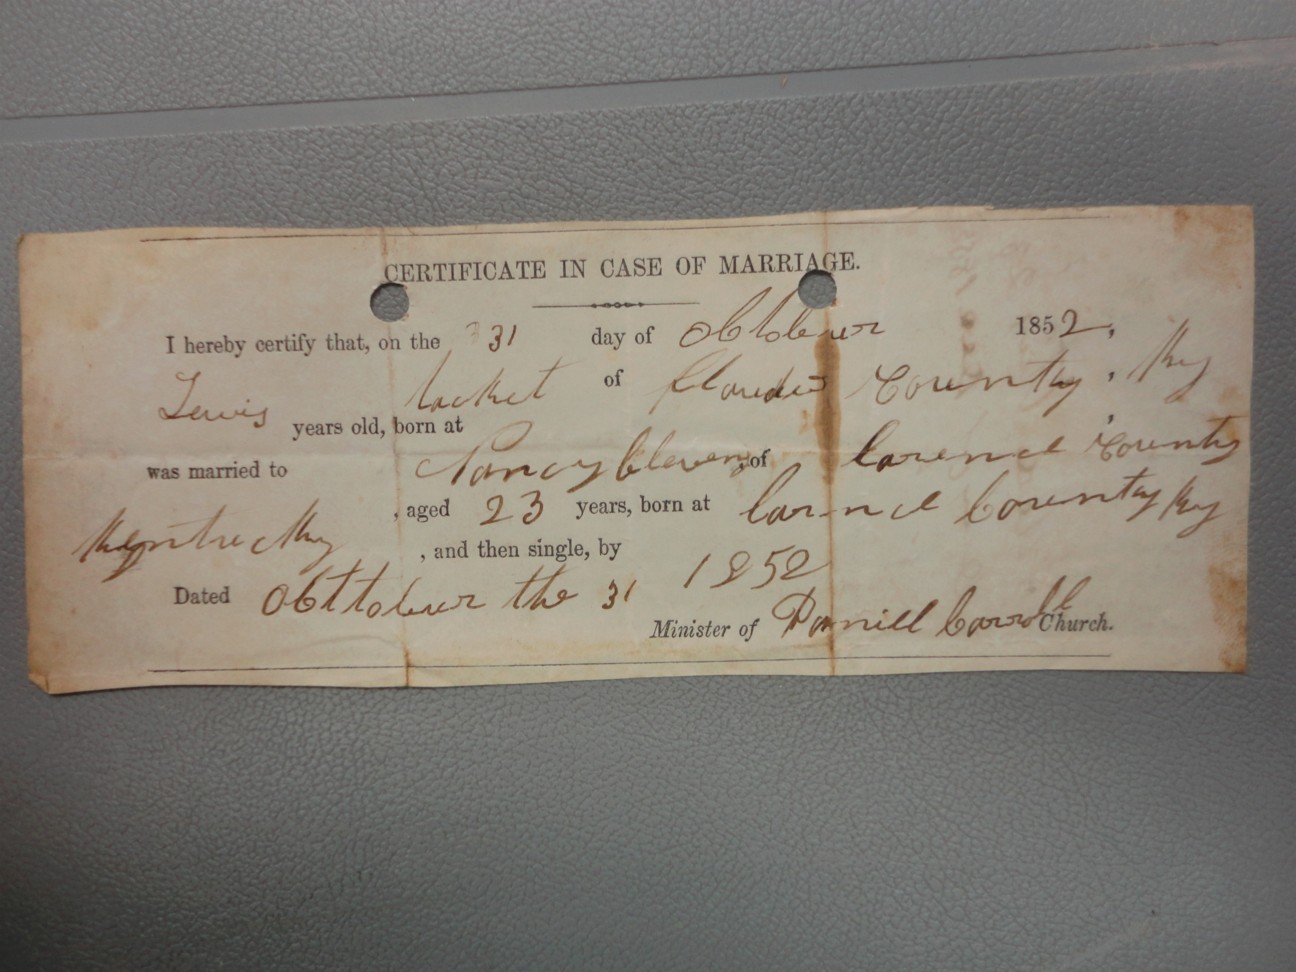 CERTIFICATE IN CASE OF MARRIAGE.
I hereby certify that, on the 31 day of obtober 1852,
Lewis locket of County, Ky
years old, born at
was married to Nancy blevens, of larence County
, aged 23 years, born at larence County Ky
, and then single, by
Dated obttober the 31 1852
Minister of Danniell Carroll Church.